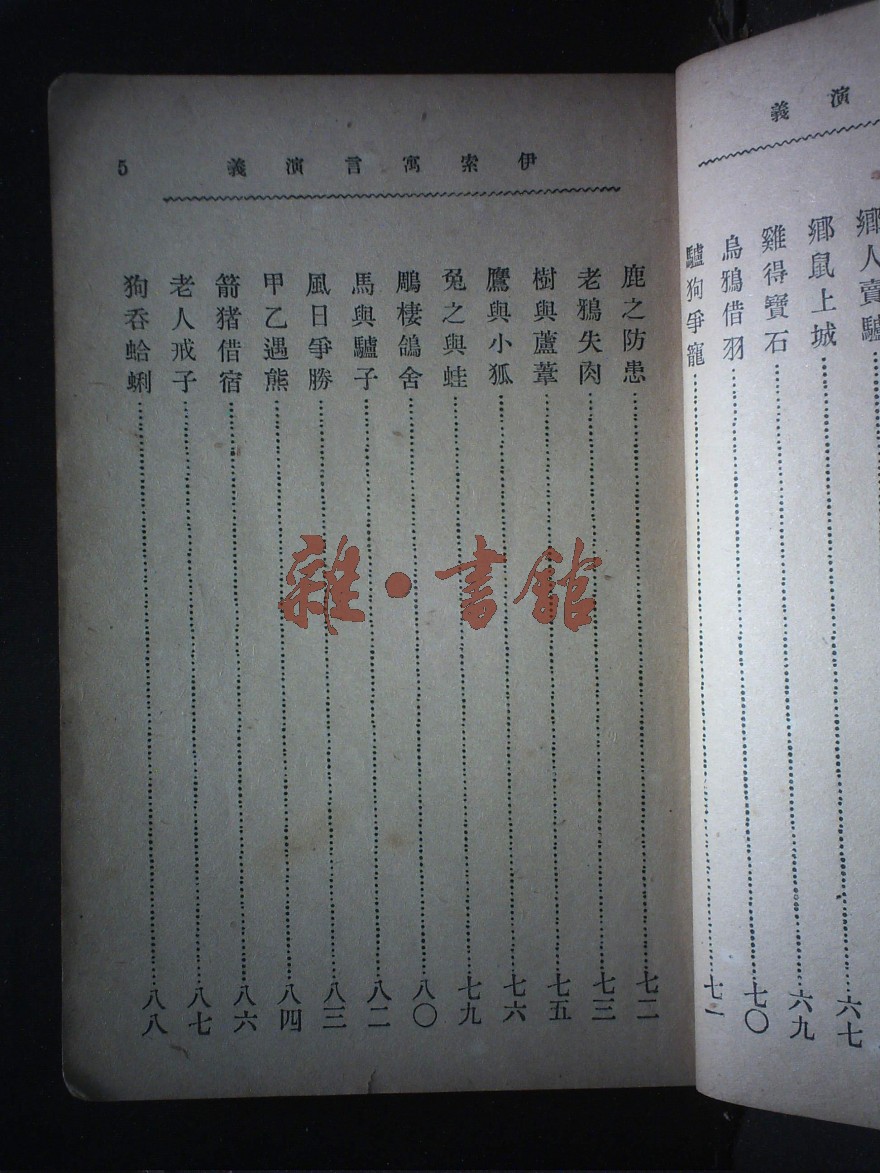 演義
鄉人賣驢……六七
鄉鼠上城……六九
雞得寶石……七〇
烏鴉借羽……七一
驢狗爭寵
伊索寓言演義 5
鹿之防患……七二
老鴉失肉……七三
樹與蘆葦……七五
鷹與小狐……七六
兔之與蛙……七九
鵰棲鴿舍……八〇
馬與驢子……八二
風日爭勝……八三
甲乙遇熊……八四
箭猪借宿……八六
老人戒子……八七
狗呑蛤蜊……八八
雜·書館